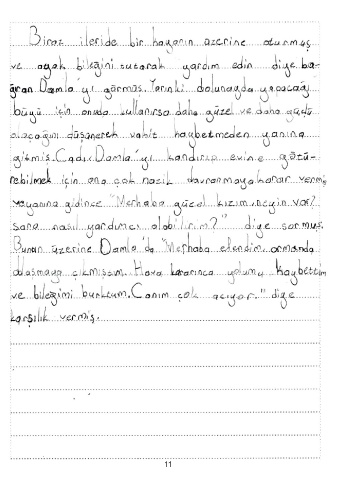 Biraz ileride bir kayanın üzerine oturmuş
ve ayak bileğini tutarak yardım edin diye ba-
ğıran Damla'yı görmüş. Yarınki dolunayda yapacağı
büyü için onuda kullanırsa daha güzel ve daha güçlü
olacağını düşünerek vakit kaybetmeden yanına
gitmiş. Cadı, Damla'yı kandırıp evine götü-
rebilmek için ona çok nazik davranmaya karar vermiş
ve yanına gidince "Merhaba güzel kızım, neyin var?
sana nasıl yardımcı olabilirim?" diye sormuş.
Bunun üzerine Damla'da "Merhaba efendim, ormanda
dolaşmaya çıkmıştım. Hava kararınca yolumu kaybettim
ve bileğimi burktum. Canım çok acıyor." diye
karşılık vermiş.
11